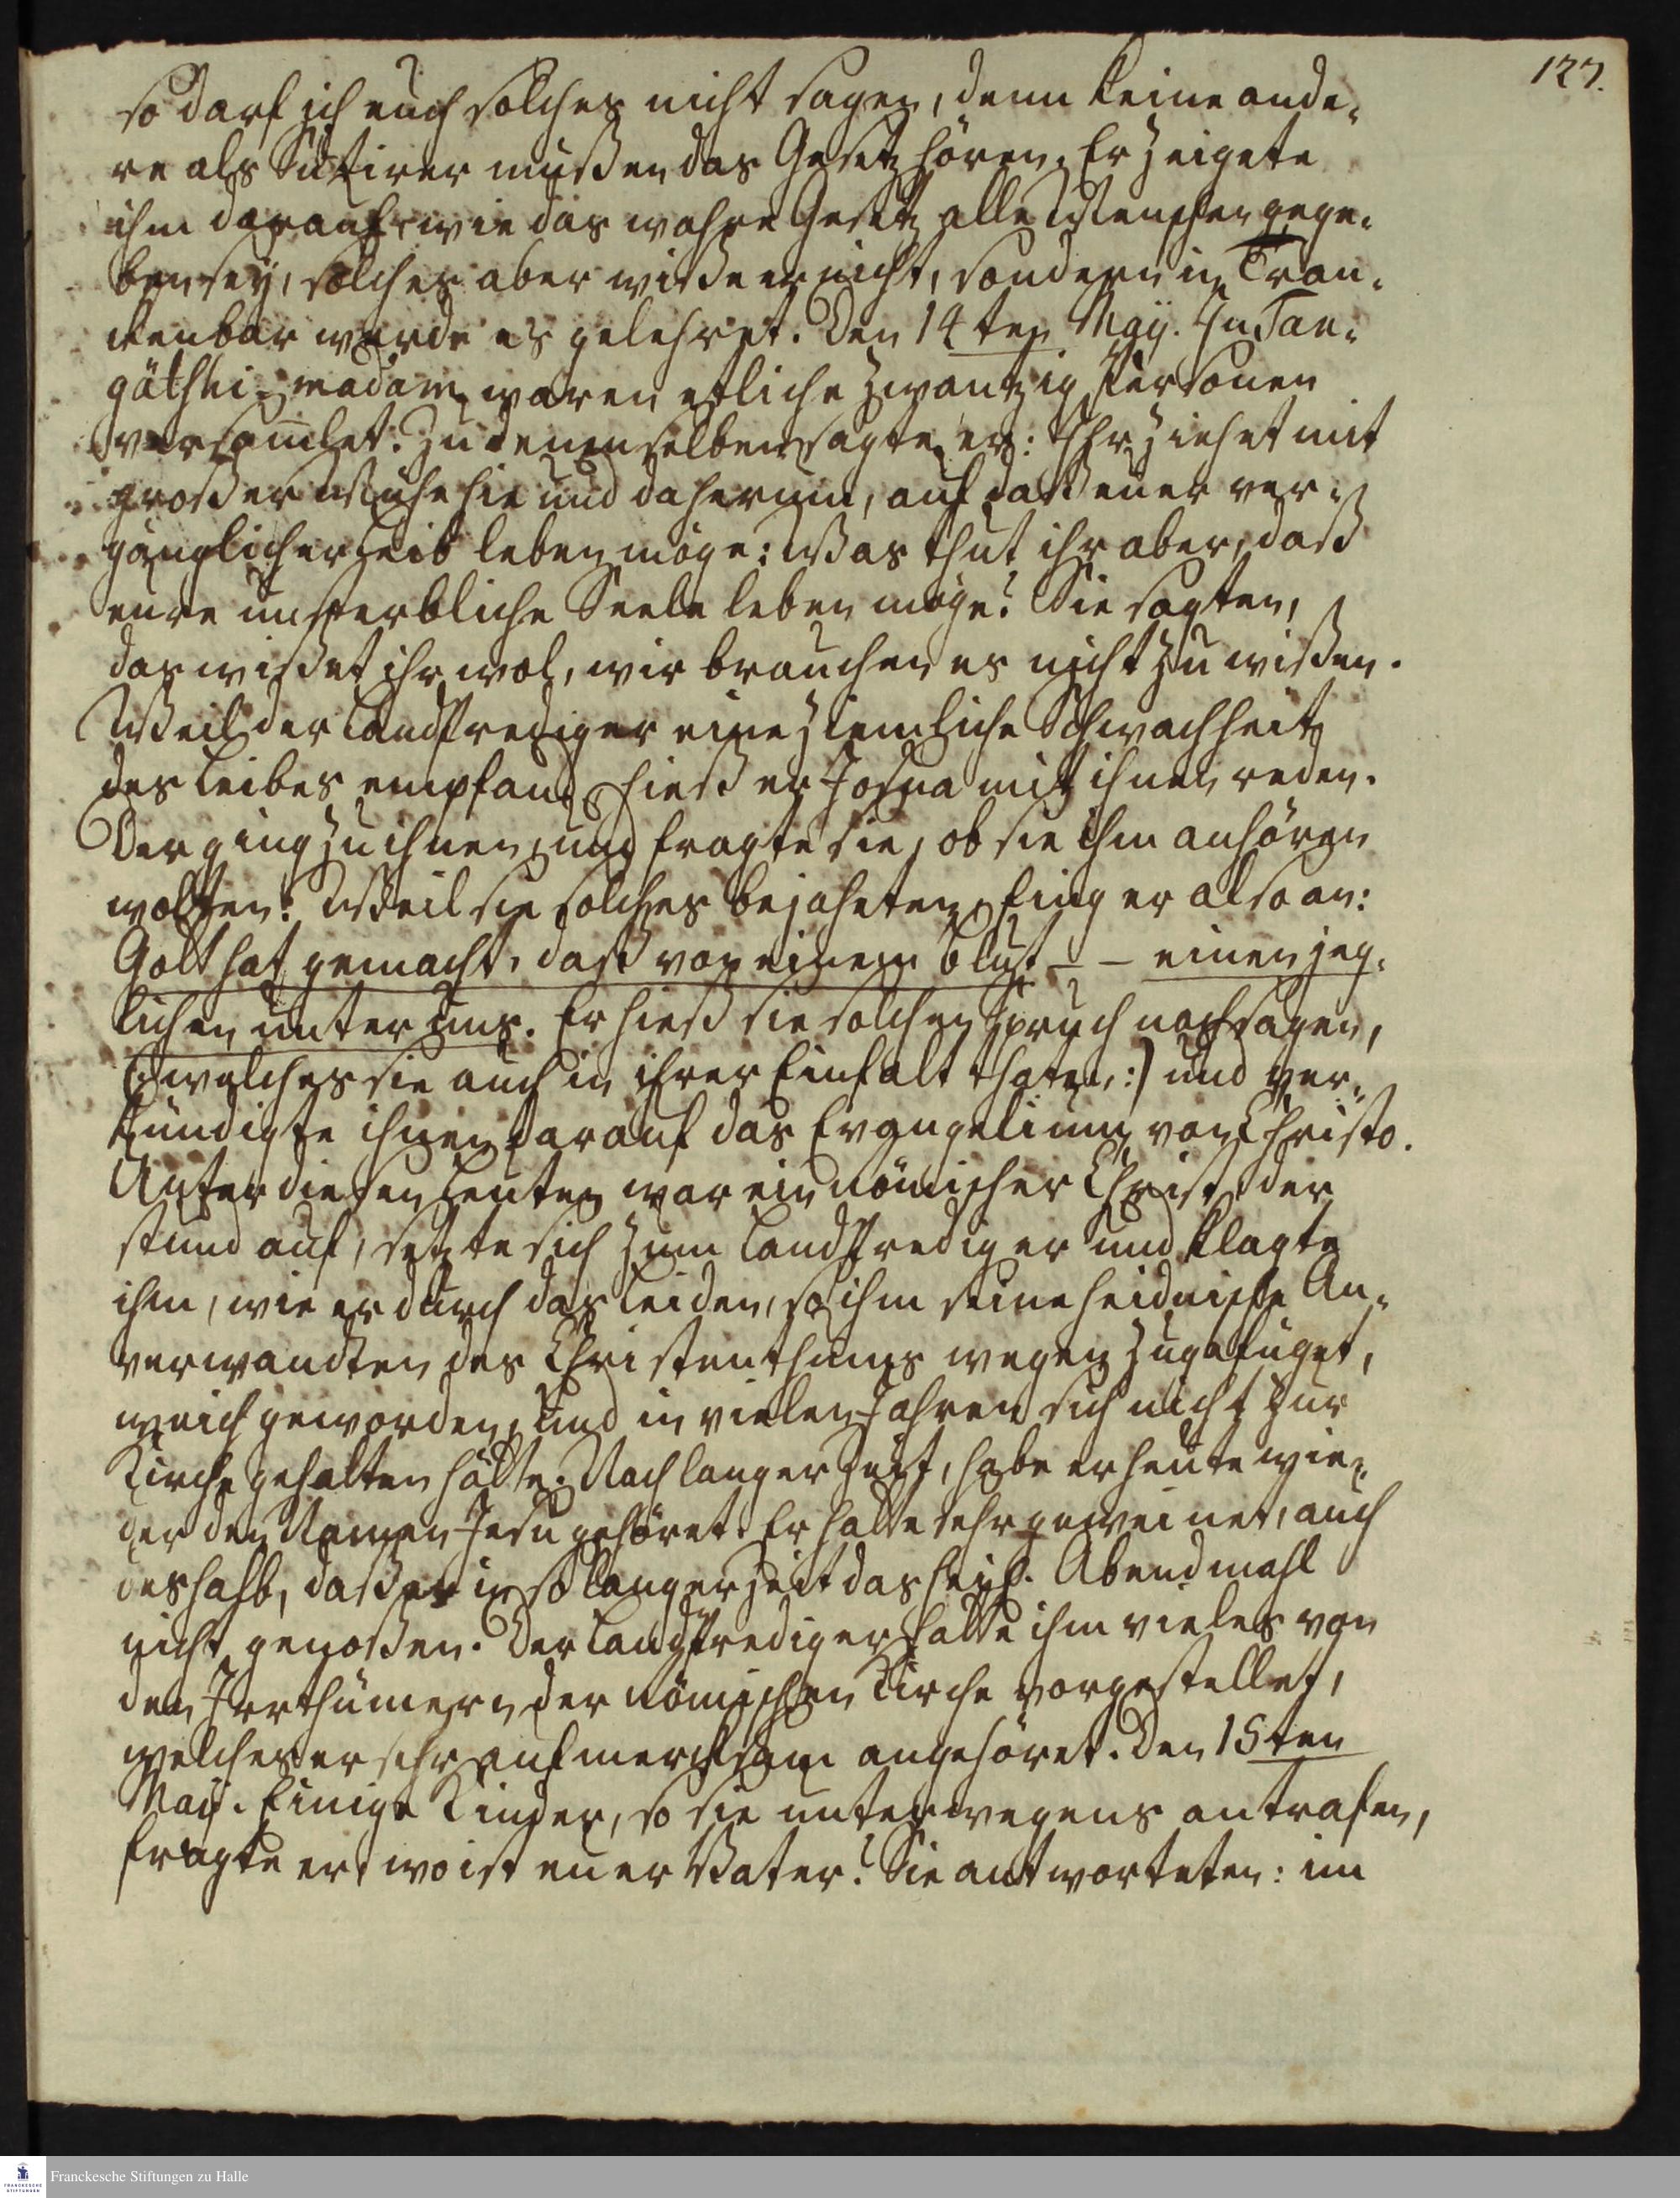 127.
so darf ich euch solches nicht sagen, denn keine ande-
re als Sutirer müßen das Gesetz hören. Er zeigete
ihm darauf wie das wahre Gesetz alle Menschen gege-
ben sey, solches aber wiße er nicht, sondern in Tran-
ckenbar wurde es gelehret. Den 14ten Maÿ. In Tan-
gätshi-madam waren etliche zwantzig Personen
versamlet. Zu denenselben sagte er: Ihr ziehet mit
großer Mühe hie und da herum, auf daß euer ver-
gänglicher Leib leben möge: Was thut ihr aber, daß
eure unsterbliche Seele leben möge? Sie sagten,
das wißet ihr wol, wir brauchen es nicht zu wißen.
Weil der Landprediger eine ziemliche Schwachheit
des Leibes empfand, hieß er Josua mit ihnen reden.
Der ging zu ihnen, und fragte sie, ob sie ihm anhören
wolten? Weil sie solches bejaheten, fing er also an:
Gott hat gemacht, daß von einem Blut - - einen jeg-
lichen unter uns. Er hieß sie solchen Spruch nachsagen,
(: welches sie auch in ihrer Einfalt thaten, :) und ver-
kündigte ihnen darauf das Evangelium von Christo.
Unter diesen Leuten war ein römischer Christ, der
stund auf, setzte sich zum Landprediger und klagte
ihm, wie er durch das Leiden, so ihm seine heidnische An-
verwandten des Christenthums wegen zugefüget,
weich geworden, und in vielen Jahren sich nicht zur
Kirche gehalten hätte. Nach langer Zeit, habe er heute wie-
der den Namen Jesu gehöret. Er hatte sehr geweinet, auch
deshalb, daß er in so langer Zeit das heil. Abendmahl
nicht genoßen. Der Landprediger hatte ihm vieles von
den Irrthümern der römischen Kirche vorgestellet,
welches er sehr aufmercksam angehöret. Den 15ten
Maÿ. Einige Kinder, so sie unterwegens antrafen,
fragte er, wo ist euer Vater? Sie antworteten: im
Franckesche Stiftungen zu Halle